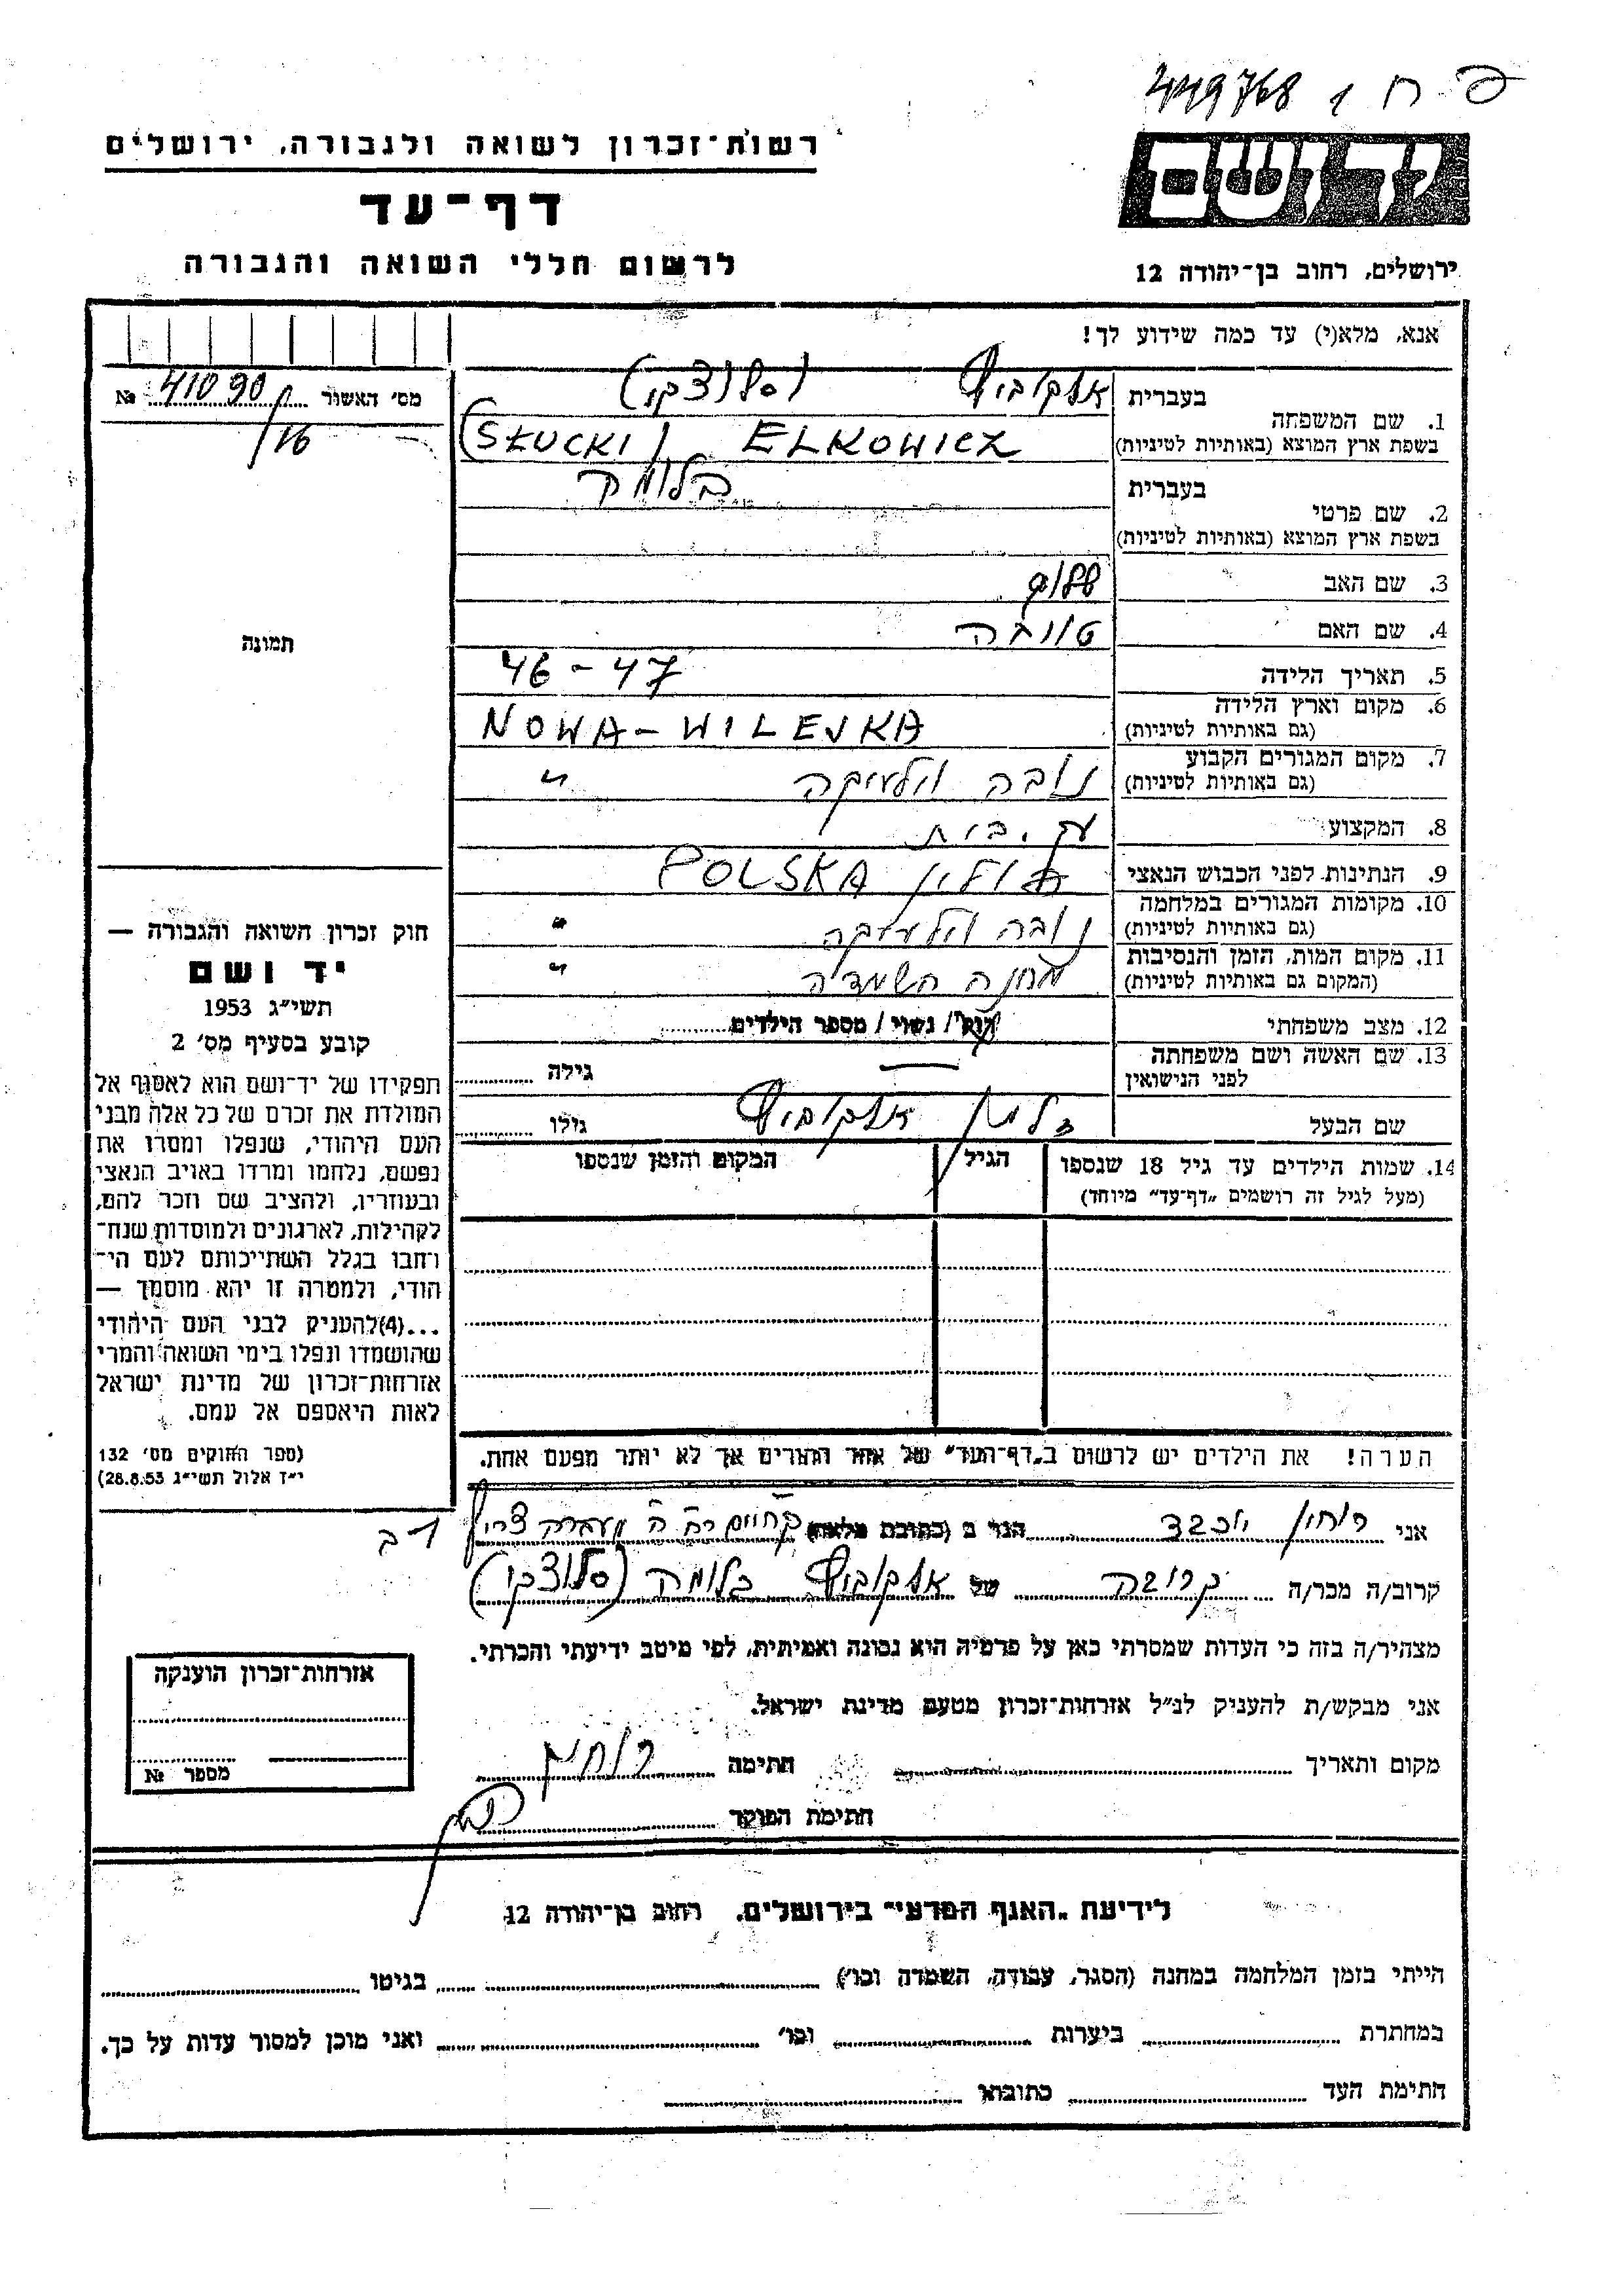 449768
רשות־זכרון לשואה ולגבורה, ירושלים
יד ושם
דף־עד
לרשום חללי השואה והגבורה
ירושלים, רחוב בן־יהודה 12
אנא, מלא(י) עד כמה שידוע לך!
מס׳ האשור 41090 №
/16
בעברית אלקוביץ (סלוצקי)
1. שם המשפחה
בשפת ארץ המוצא (באותיות לטיניות) (SŁUCKI) ELKOWICZ
בעברית בלומה
2. שם פרטי
בשפת ארץ המוצא (באותיות לטיניות)
3. שם האב
4. שם האם טובה
5. תאריך הלידה 46-47
6. מקום וארץ הלידה
(גם באותיות לטיניות) NOWA-WILEJKA
7. מקום המגורים הקבוע
(גם באותיות לטיניות) נובה וילייקה "
8. המקצוע עק. בית
9. הנתינות לפני הכבוש הנאצי פולין POLSKA
10. מקומות המגורים במלחמה
(גם באותיות לטיניות) נובה וילייקה "
11. מקום המות, הזמן והנסיבות
(המקום גם באותיות לטיניות) מחנה השמדה "
12. מצב משפחתי רוק/ נשוי/ מספר הילדים
13. שם האשה ושם משפחתה
לפני הנישואין — גילה
שם הבעל אלקוביץ גילו
14. שמות הילדים עד גיל 18 שנספו הגיל המקום והזמן שנספו
(מעל לגיל זה רושמים „דף־עד״ מיוחד)
הערה! את הילדים יש לרשום ב„דף־העד״ של אחד ההורים אך לא יותר מפעם אחת.
תמונה
חוק זכרון השואה והגבורה —
יד ושם
תשי״ג 1953
קובע בסעיף מס׳ 2
תפקידו של יד־ושם הוא לאסוף אל
המולדת את זכרם של כל אלה מבני
העם היהודי, שנפלו ומסרו את
נפשם, נלחמו ומרדו באויב הנאצי
ובעוזריו, ולהציב שם וזכר להם,
לקהילות, לארגונים ולמוסדות שנח־
רחבו בגלל השתייכותם לעם הי־
הודי, ולמטרה זו יהא מוסמך —
...(4)להעניק לבני העם היהודי
שהושמדו ונפלו בימי השואה והמרי
אזרחות־זכרון של מדינת ישראל
לאות היאספם אל עמם.
(ספר החוקים מס׳ 132
י״ז אלול תשי״ג 28.8.53)
אני יוכבד הגר ב (כתובת מלאה)
קרוב/ה מכר/ה קרובה של אלקוביץ בלומה (סלוצקי)
מצהיר/ה בזה כי העדות שמסרתי כאן על פרטיה הוא נכונה ואמיתית, לפי מיטב ידיעתי והכרתי.
אני מבקש/ת להעניק לנ״ל אזרחות־זכרון מטעם מדינת ישראל.
מקום ותאריך חתימה
חתימת הפוקד
אזרחות־זכרון הוענקה
מספר №
לידיעת „האגף המדעי״ בירושלים, רחוב בן־יהודה 12
הייתי בזמן המלחמה במחנה (הסגר, עבודה, השמדה וכו׳) בגיטו
במחתרת ביערות וכו׳ ואני מוכן למסור עדות על כך.
חתימת העד כתובתו